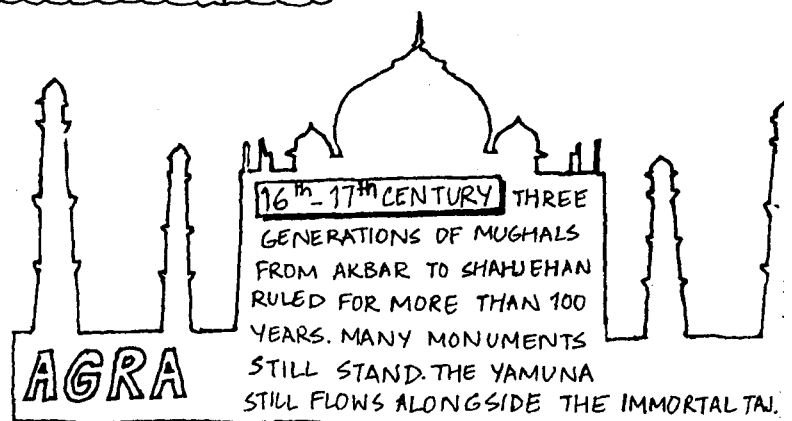 16th-17th CENTURY THREE
GENERATIONS OF MUGHALS
FROM AKBAR TO SHAHJEHAN
RULED FOR MORE THAN 100
YEARS. MANY MONUMENTS
STILL STAND. THE YAMUNA
STILL FLOWS ALONGSIDE THE IMMORTAL TAJ.
AGRA